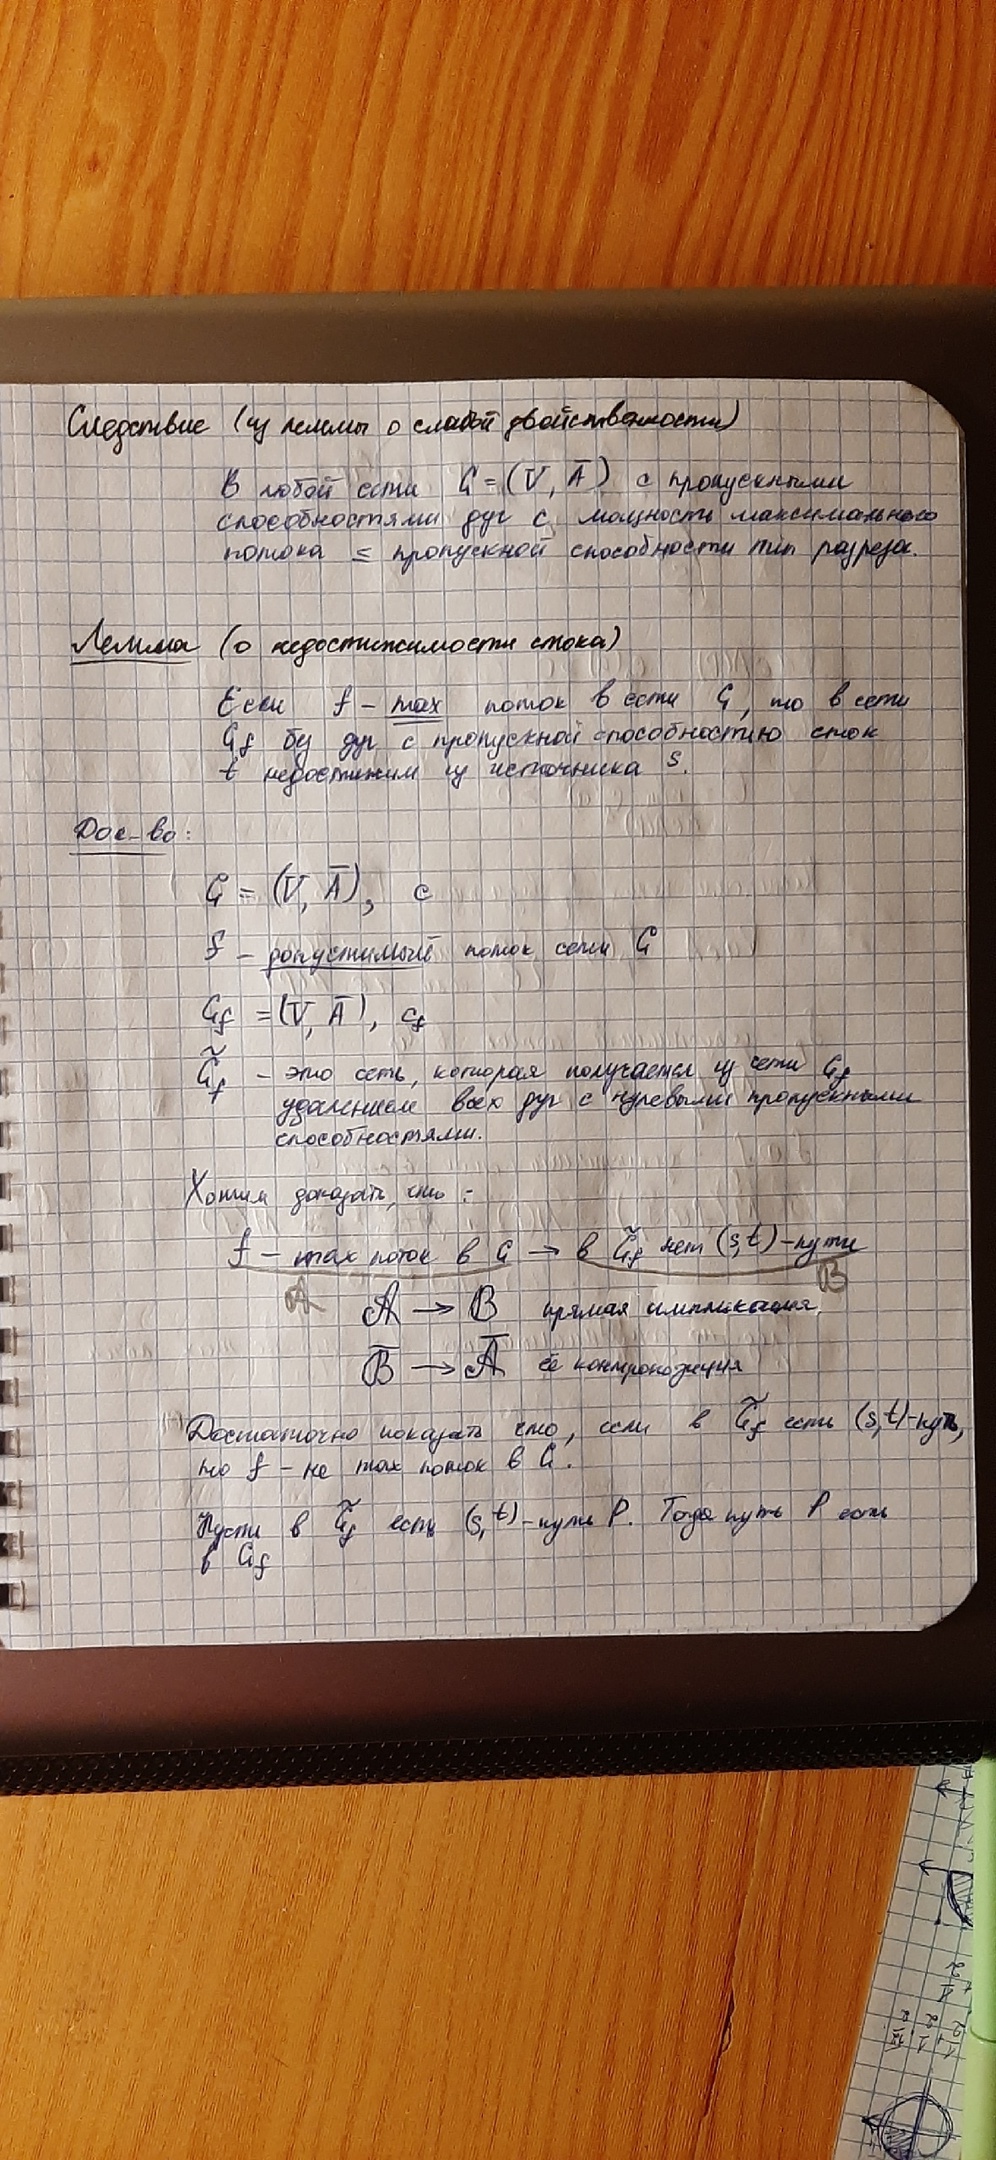 Следствие (из леммы о слабой двойственности)
В любой сети G = (V, A̅) с пропускными
способностями дуг c мощность максимального
потока ≤ пропускной способности min разреза.
Лемма (о недостижимости стока)
Если f – max поток в сети G, то в сети
G_f без дуг с пропускной способностью сток
t недостижим из источника s.
Док-во:
G = (V, A̅), c
f – допустимый поток сети G
G_f = (V, A̅), c_f
G̃_f – это сеть, которая получается из сети G_f
удалением всех дуг с нулевыми пропускными
способностями.
Хотим доказать, что:
f – max поток в G → в G̃_f нет (s,t)-пути
A B
A → B прямая импликация
B̅ → A̅ её контрпозиция
Достаточно показать что, если в G̃_f есть (s,t)-путь,
то f – не max поток в G.
Пусть в G̃_f есть (s,t)-путь P. Тогда путь P есть
в G_f